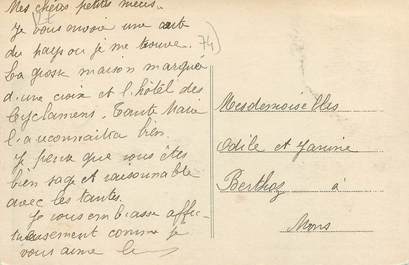 Mes chères petites nièces.
Je vous envoie une carte
du pays ou je me trouve.
La grosse maison marquée
d'une croix et l'hôtel des
Cyclamens. Tante Marie
l'aconnaitra bien.
Je pense que vous êtes
bien sages et raisonnable
avec les tantes.
Je vous embrasse affec-
tueusement comme je
vous aime
74)
Mesdemoiselles
Odile et Janine
Berthoz à
Mons